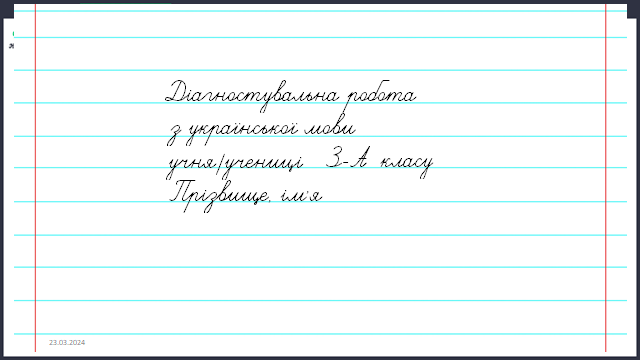 Діагностувальна робота
з української мови
учня/учениці 3-А класу
Прізвище, ім'я
23.03.2024